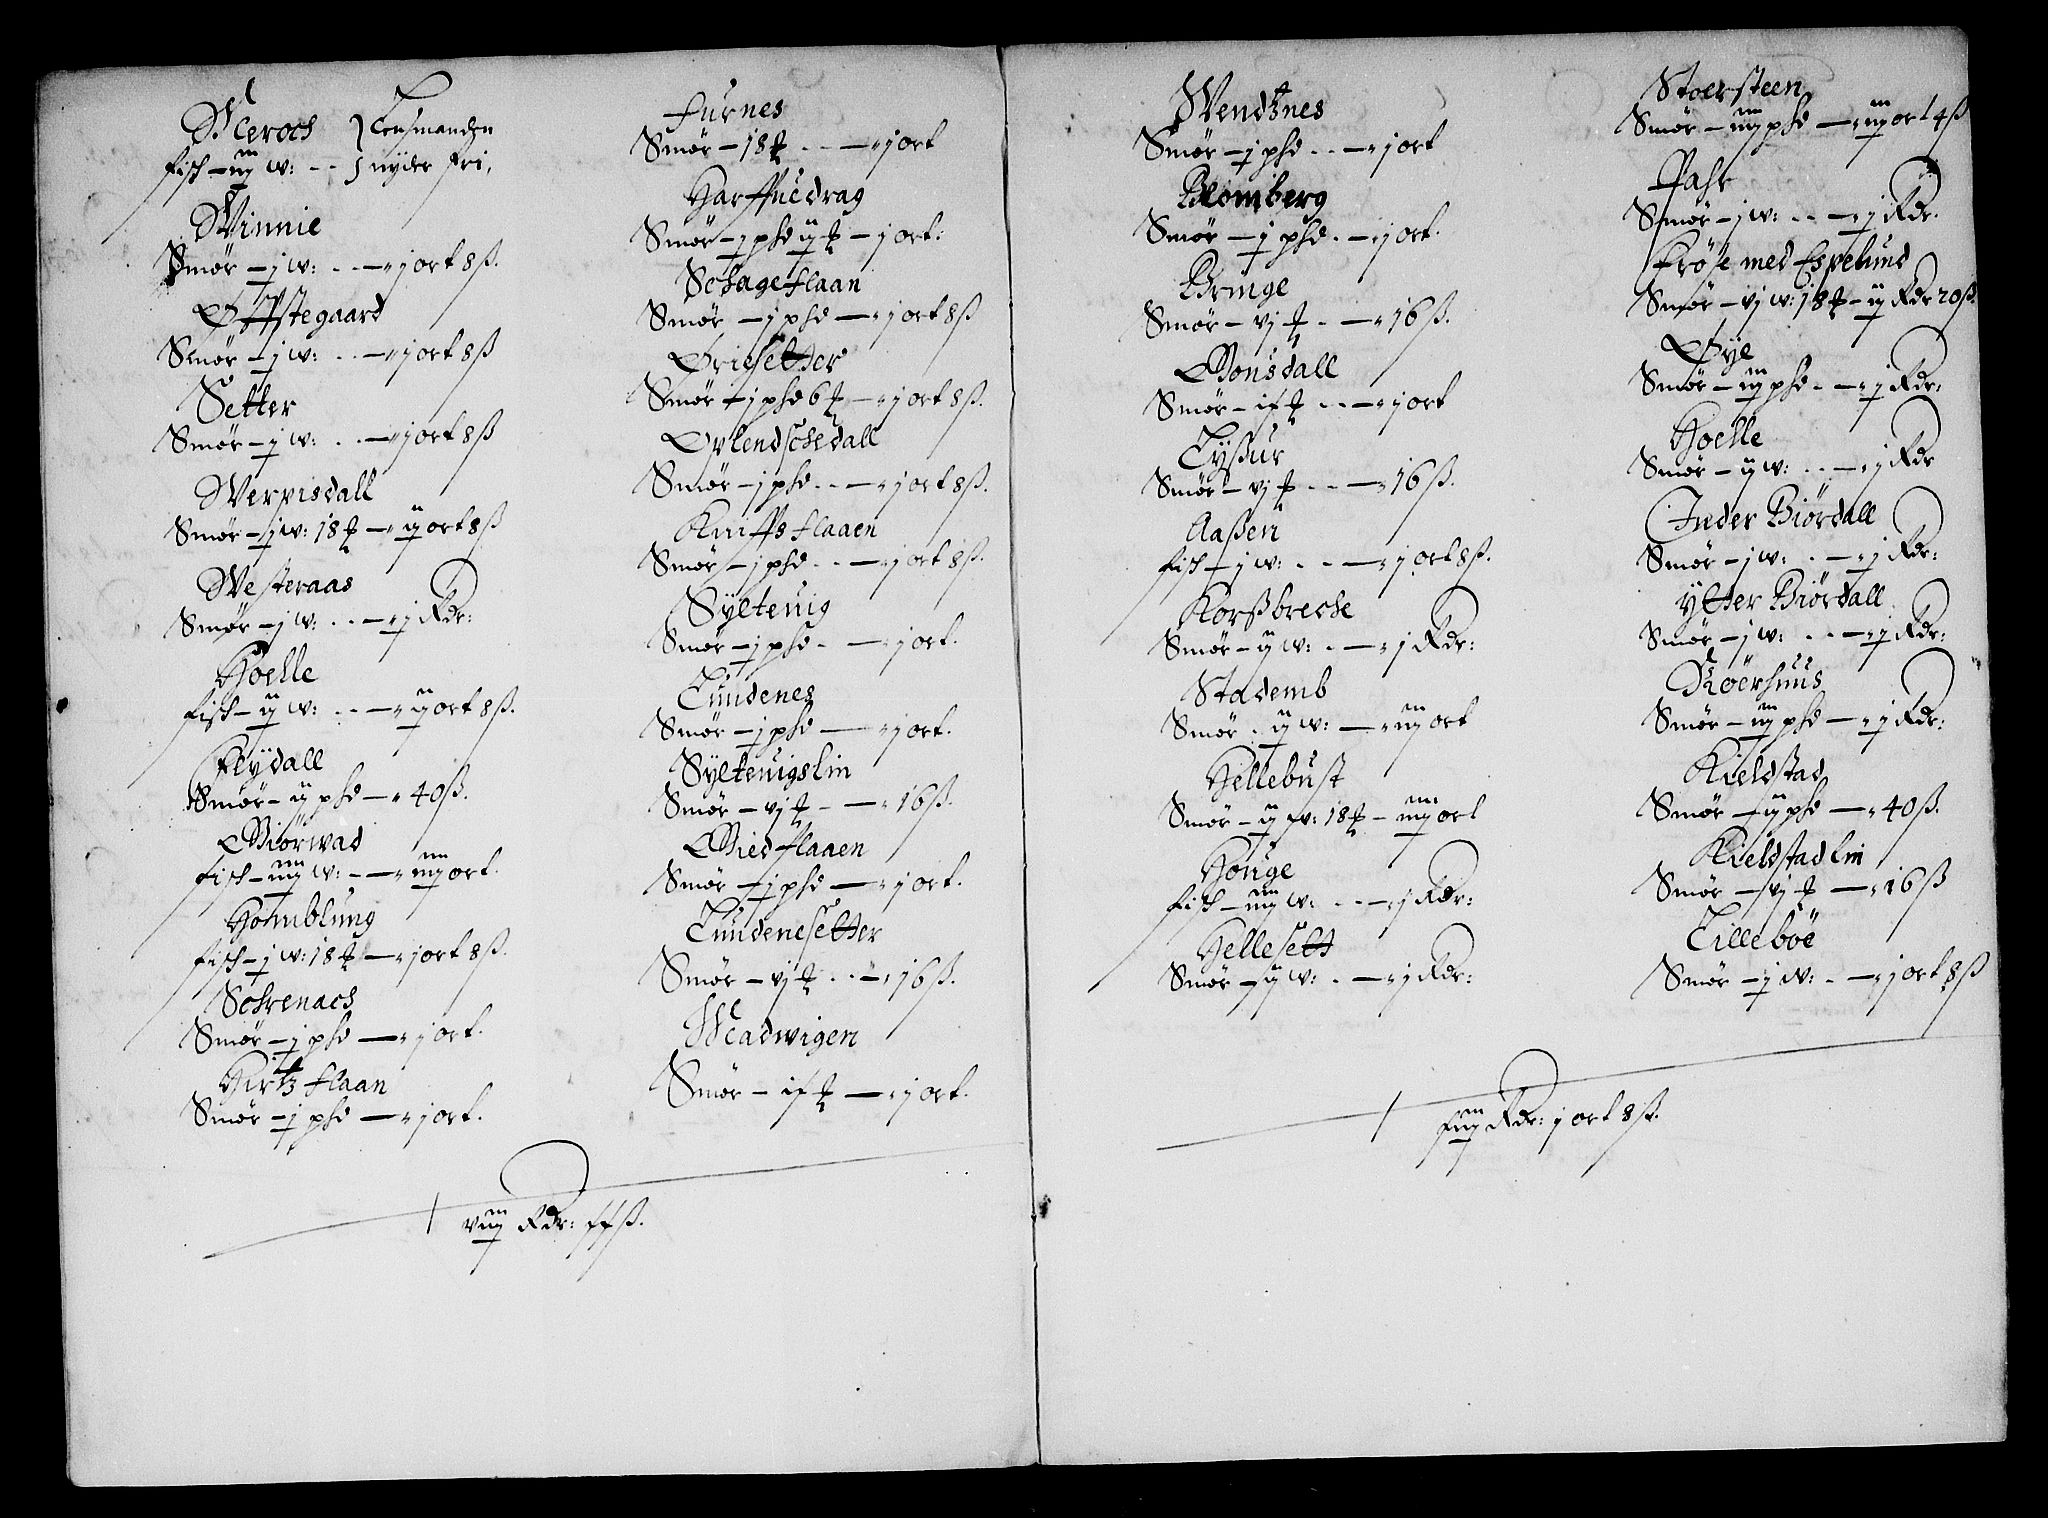 Meroch } Lensmanden
fisch – iij w: -- } nyder fri,
Winnie
Smør – j w: -- – j ort 8 ß.
Øffstegaard
Smør – j w: -- – j ort 8 ß
Setter
Smør – j w: -- – j ort 8 ß
Werpisdall
Smør – j w: 18 ℔ – ij ort 8 ß
Westeraas
Smør – j w: -- – j Rdr:
Hoelle
fisch – ij w: -- – ij ort 8 ß.
Flydall
Smør – ij phd – 40 ß.
Giørwad
fisch – iiij w: - – iiij ort.
Homblung
fisch – j w: 18 ℔ – j ort 8 ß.
Schrenach
Smør – j phd – j ort.
Hirtzflaan
Smør – j phd – j ort.
furnes
Smør – 18 ℔ -- – j ort
Harffuedrag
Smør – j phd ij ℔ – j ort:
Schageflaan
Smør – j phd – j ort 8 ß
Ørisetter
Smør – j phd 6 ℔ – j ort 8 ß.
Oplendschedall
Smør – j phd -- – j ort 8 ß.
Kniffsflaaen
Smør – j phd -- – j ort 8 ß.
Syltevig
Smør – j phd - – j ort.
Lundenes
Smør – j phd – j ort.
Syltevigslin
Smør – vj ℔ - – 16 ß.
Giedflaaen
Smør – j phd – j ort.
Lundenesetter
Smør – vj ℔ -- – 16 ß.
Madwigen
Smør – if ℔ – j ort.
viij Rdr: ff ß.
Wendtznes
Smør – j phd -- – j ort
Blomberg
Smør – j phd - – j ort.
Bringe
Smør – vj ℔ - – 16 ß.
Gonsdall
Smør – if ℔ -- – j ort
Lyßur
Smør – vj ℔ -- – 16 ß.
Aaßen
fisch – j w: -- – j ort 8 ß.
Korßbreche
Smør – ij w: - – j Rdr:
Stademb
Smør - ij w: – iij ort
Hellebust
Smør – ij w: 18 ℔ – iiij ort
Houge
fisch – iiij w: -- – j Rdr:
Hellesett
Smør – ij w: - – j Rdr:
Stoersteen
Smør – iij phd – iij ort 4 ß
Pahr
Smør – j w: -- – j Rdr.
Frøse med Espelund
Smør – vj w: 18 ℔ – ij Rdr 20 ß.
Øye
Smør – iij phd - – j Rdr:
Hoelle
Smør – ij w: -- – j Rdr
Inder Biördall
Smør – j w: -- – j Rdr:
Ytter Biördall
Smør – j w: -- – j Rdr:
Röerhuus
Smør – iij phd – j Rdr:
Kieldstad
Smør – ij phd – 40 ß.
Kieldstadlin
Smør – vj ℔ – 16 ß
Lilleböe
Smør – j w: - – j ort 8 ß
fiij Rdr: j ort 8 ß.